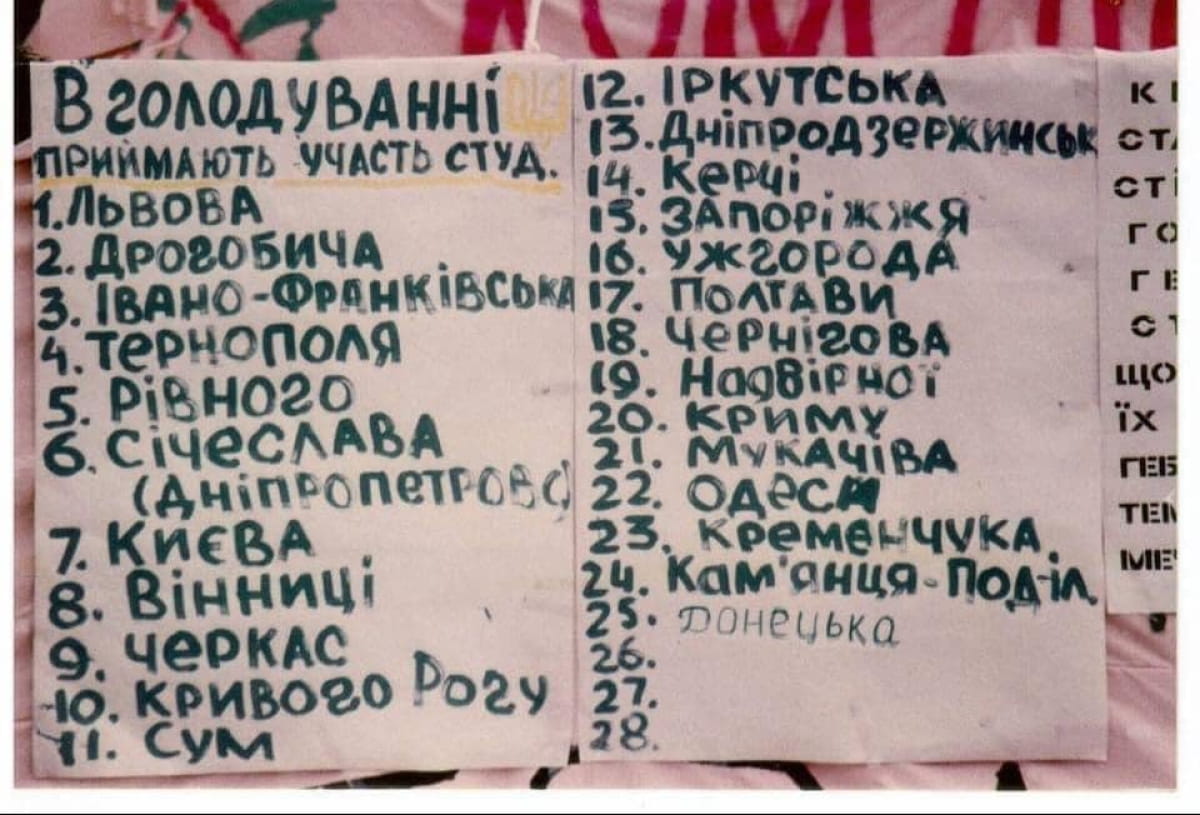 В ГОЛОДУВАННІ
ПРИЙМАЮТЬ УЧАСТЬ СТУД.
1. ЛЬВОВА
2. ДРОГОБИЧА
3. ІВАНО-ФРАНКІВСЬКА
4. ТЕРНОПОЛЯ
5. РІВНОГО
6. СІЧЕСЛАВА
(ДНІПРОПЕТРОВС)
7. КИЄВА
8. ВІННИЦІ
9. ЧЕРКАС
10. КРИВОГО РОГУ
11. СУМ
12. ІРКУТСЬКА
13. ДНІПРОДЗЕРЖИНСЬК
14. КЕРЧІ
15. ЗАПОРІЖЖЯ
16. УЖГОРОДА
17. ПОЛТАВИ
18. ЧЕРНІГОВА
19. НАДВІРНОЇ
20. КРИМУ
21. МУКАЧІВА
22. ОДЕСИ
23. КРЕМЕНЧУКА
24. КАМ'ЯНЦЯ-ПОДІЛ.
25. ДОНЕЦЬКА
26.
27.
28.
К
СТ
СТІ
ГО
ГЕ
С
ЩО
ЇХ
ГЕБ
ТЕМ
МЕ